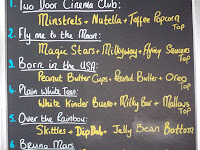 1. Two Door Cinema Club:
Minstrels + Nutella + Toffee Popcorn
Top
2. Fly me to the Moon:
Magic Stars + Milkyway + Flying Saucers
Top
3. Born in the USA:
Peanut Butter Cups + Peanut Butter + Oreo
Top
4. Plain White Tees:
White Kinder Bueno + Milky Bar + Mallows
Top
5. Over the Rainbow:
Skittles + Dip Dab + Jelly Bean Bottom
6 Bruno Mars